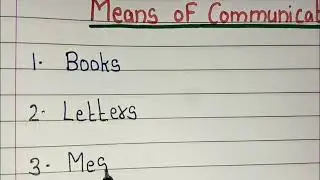 Means of Communicat
1. Books
2. Letters
3. Mes